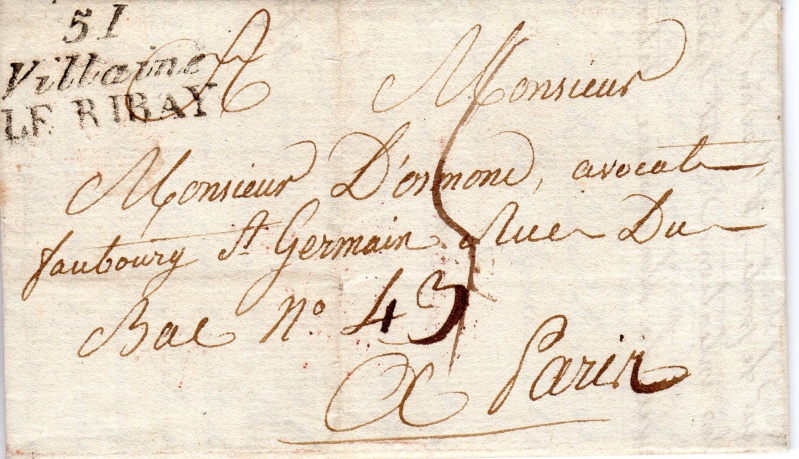 51
Villaine
LE RIBAY
A Monsieur
Monsieur D'ormone, avocat
faubourg St Germain Rue Du
Bac No 43
A Paris